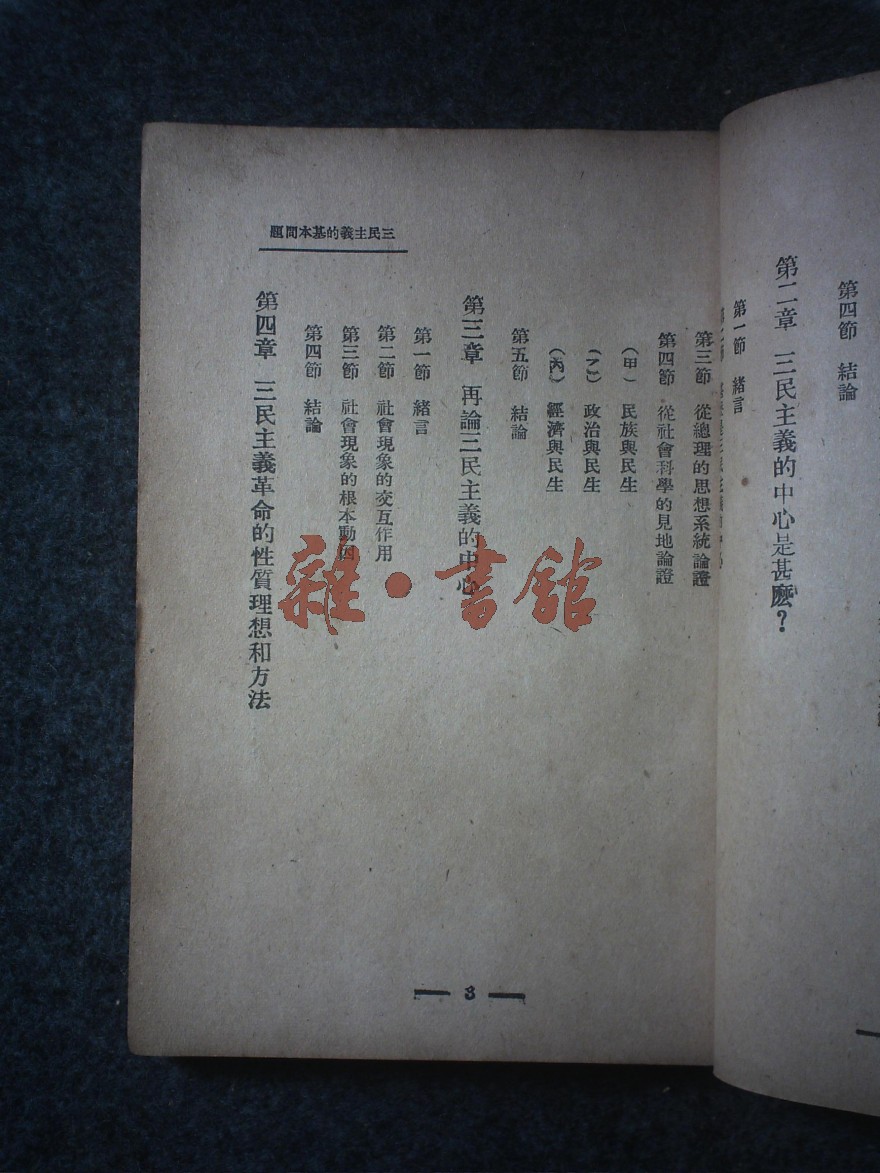 第四節 結論
第二章 三民主義的中心是甚麼?
第一節 緒言
三民主義的基本問題
第三節 從總理的思想系統論證
第四節 從社會科學的見地論證
(甲) 民族與民生
(乙) 政治與民生
(丙) 經濟與民生
第五節 結論
第三章 再論三民主義的中心
第一節 緒言
第二節 社會現象的交互作用
第三節 社會現象的根本動因
第四節 結論
第四章 三民主義革命的性質理想和方法
3
雜·書館